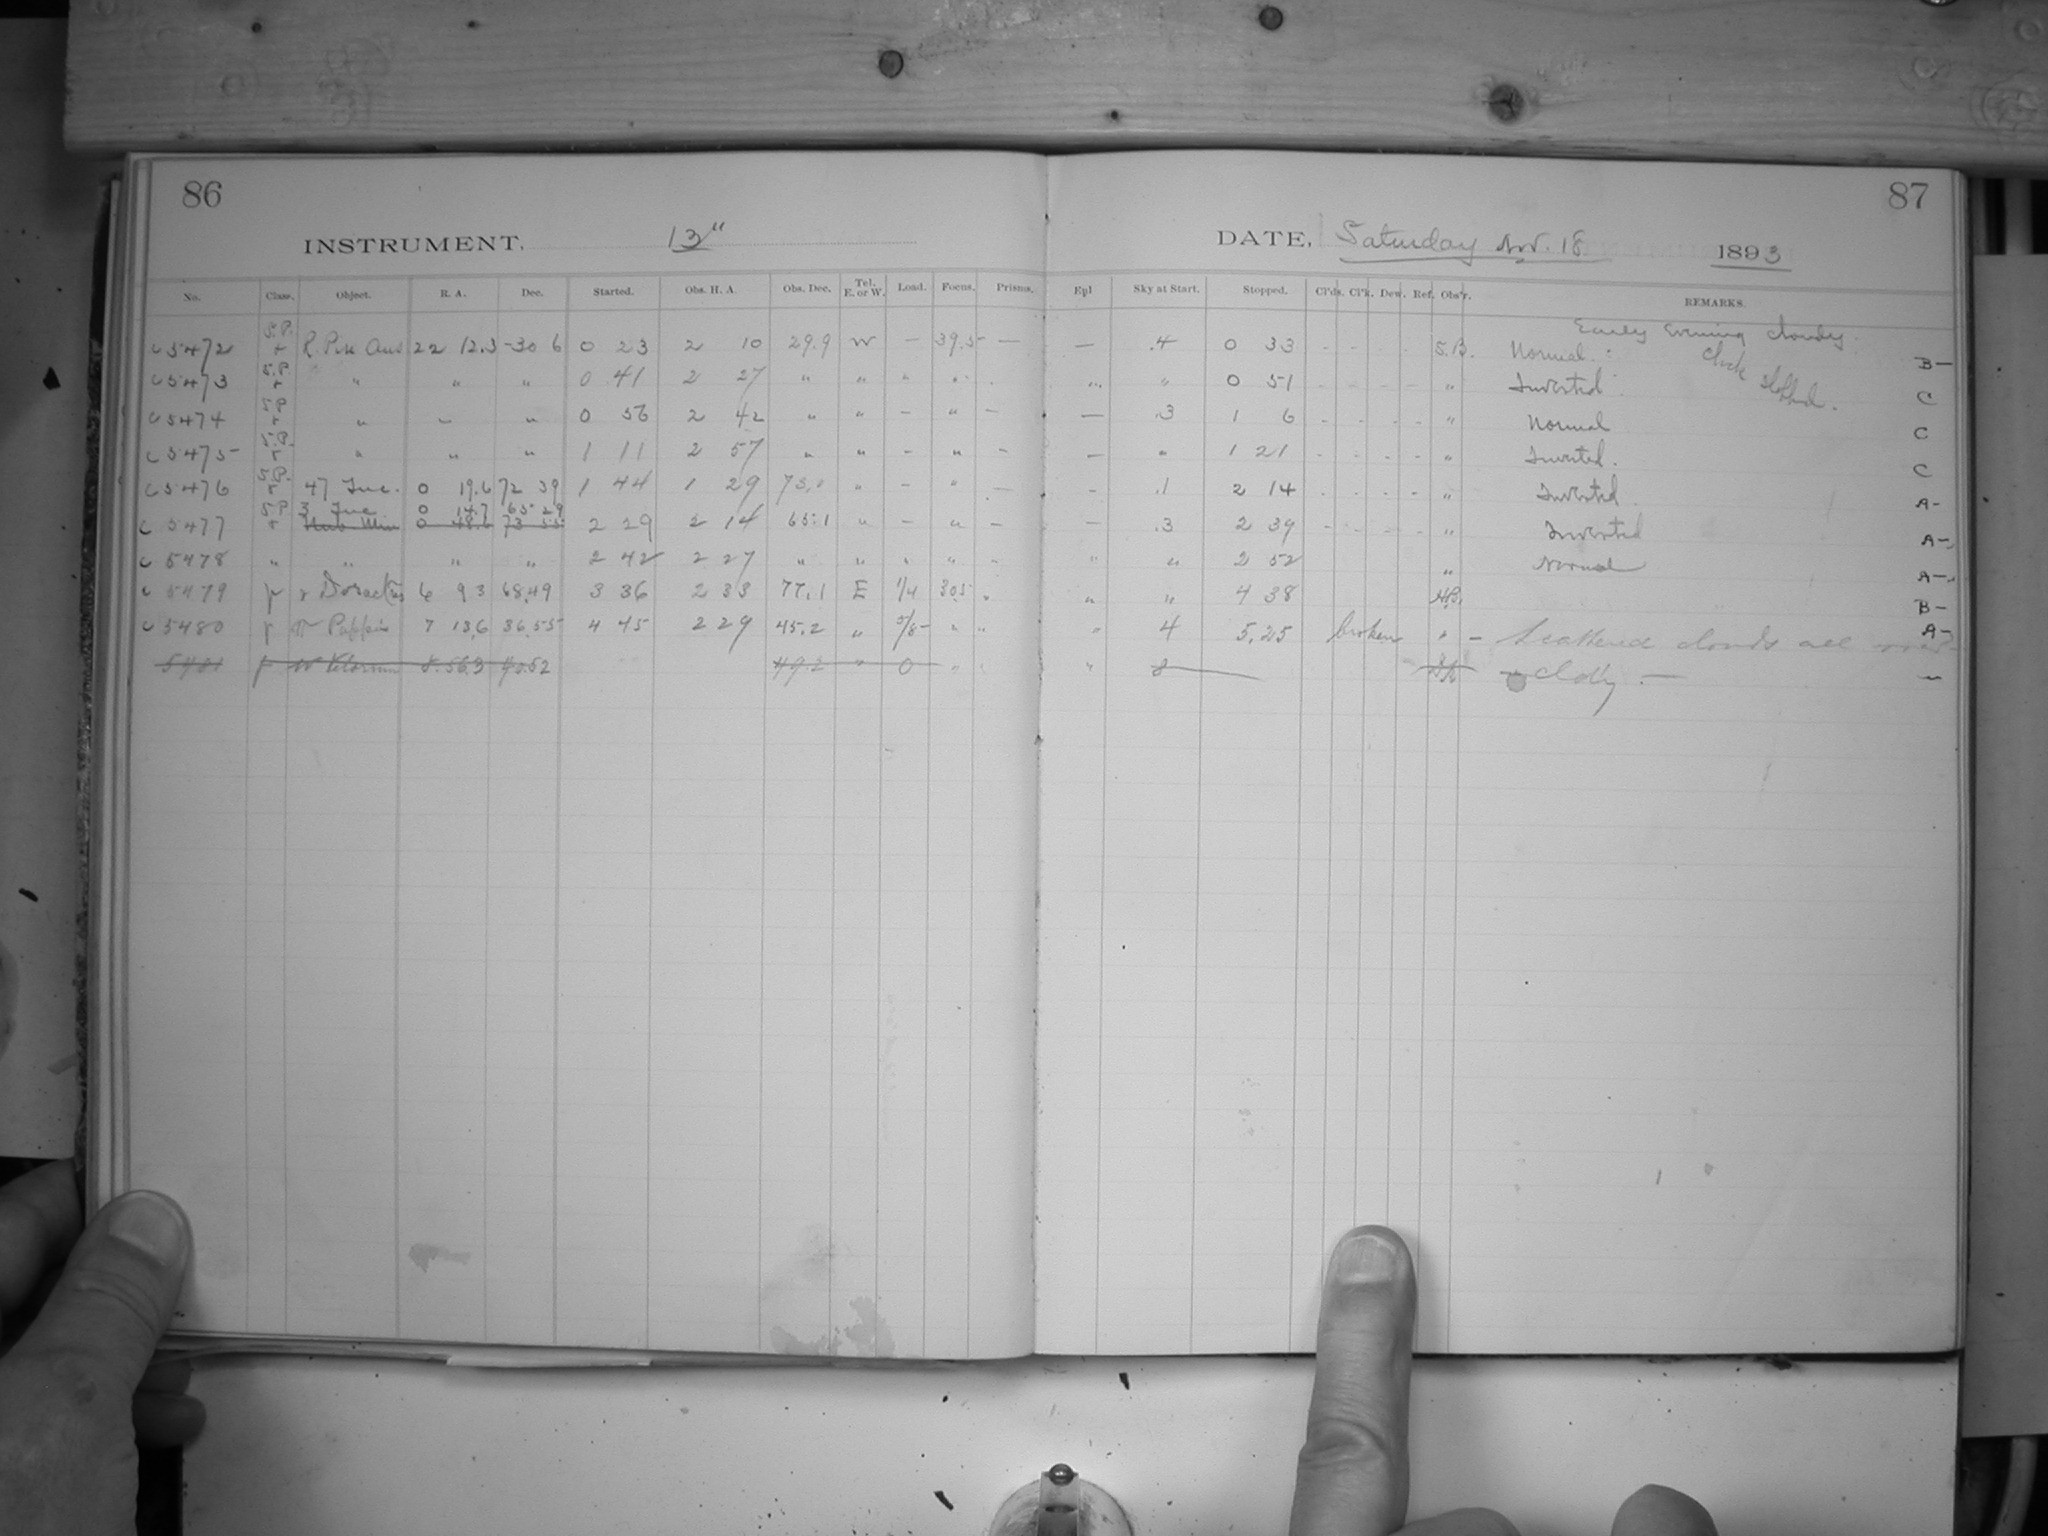 86 87
INSTRUMENT, 13" DATE, Saturday Nov. 18 1893
No. Class. Object. R. A. Dec. Started. Obs. H. A. Obs. Dec. Tel. E. or W. Load. Focus. Prisms. Sky at Start. Stopped. Cl'ds. Cl'k. Dew. Ref. Obs'r. REMARKS.
Early Evening cloudy.
5472 S.P. R. Pis. Aus 22 12.3 -30 6 0 23 2 10 29.9 W — 39.5 — — .4 0 33 - - - - S.B. Normal. Clock stopped. B-
5473 S.P. " " " 0 41 2 27 " " " " 0 51 " Inverted C
5474 S.P. " " " 0 56 2 42 " " - " - — .3 1 6 - - - - " Normal C
5475 S.P. " " " 1 11 2 57 " " - " - — " 1 21 - - - - " Inverted. C
5476 S.P. 47 Tuc. 0 19.6 72 39 1 44 1 29 " - " - - .1 2 14 - - - - " Inverted A-
3 Tuc 0 14.7 65 29
5477 S.P. 0 48.6 73 55 2 29 2 14 65.1 " - " - — .3 2 39 - - - - " Inverted A-
5478 " " " " 2 42 2 27 " " " " - " " 2 52 " Normal A-
5479 p Doradus 6 9 3 68.49 3 36 2 33 77.1 E 1/4 30.5 " " " 4 38 B-
5480 p π Puppis 7 13.6 36.55 4 45 2 29 45.2 " " " " 4 5.25 broken " - Scattered clouds all over A-
5481 p w Velorum 8.56.3 40.52 49.2 " 0 " " 8 cloudy —